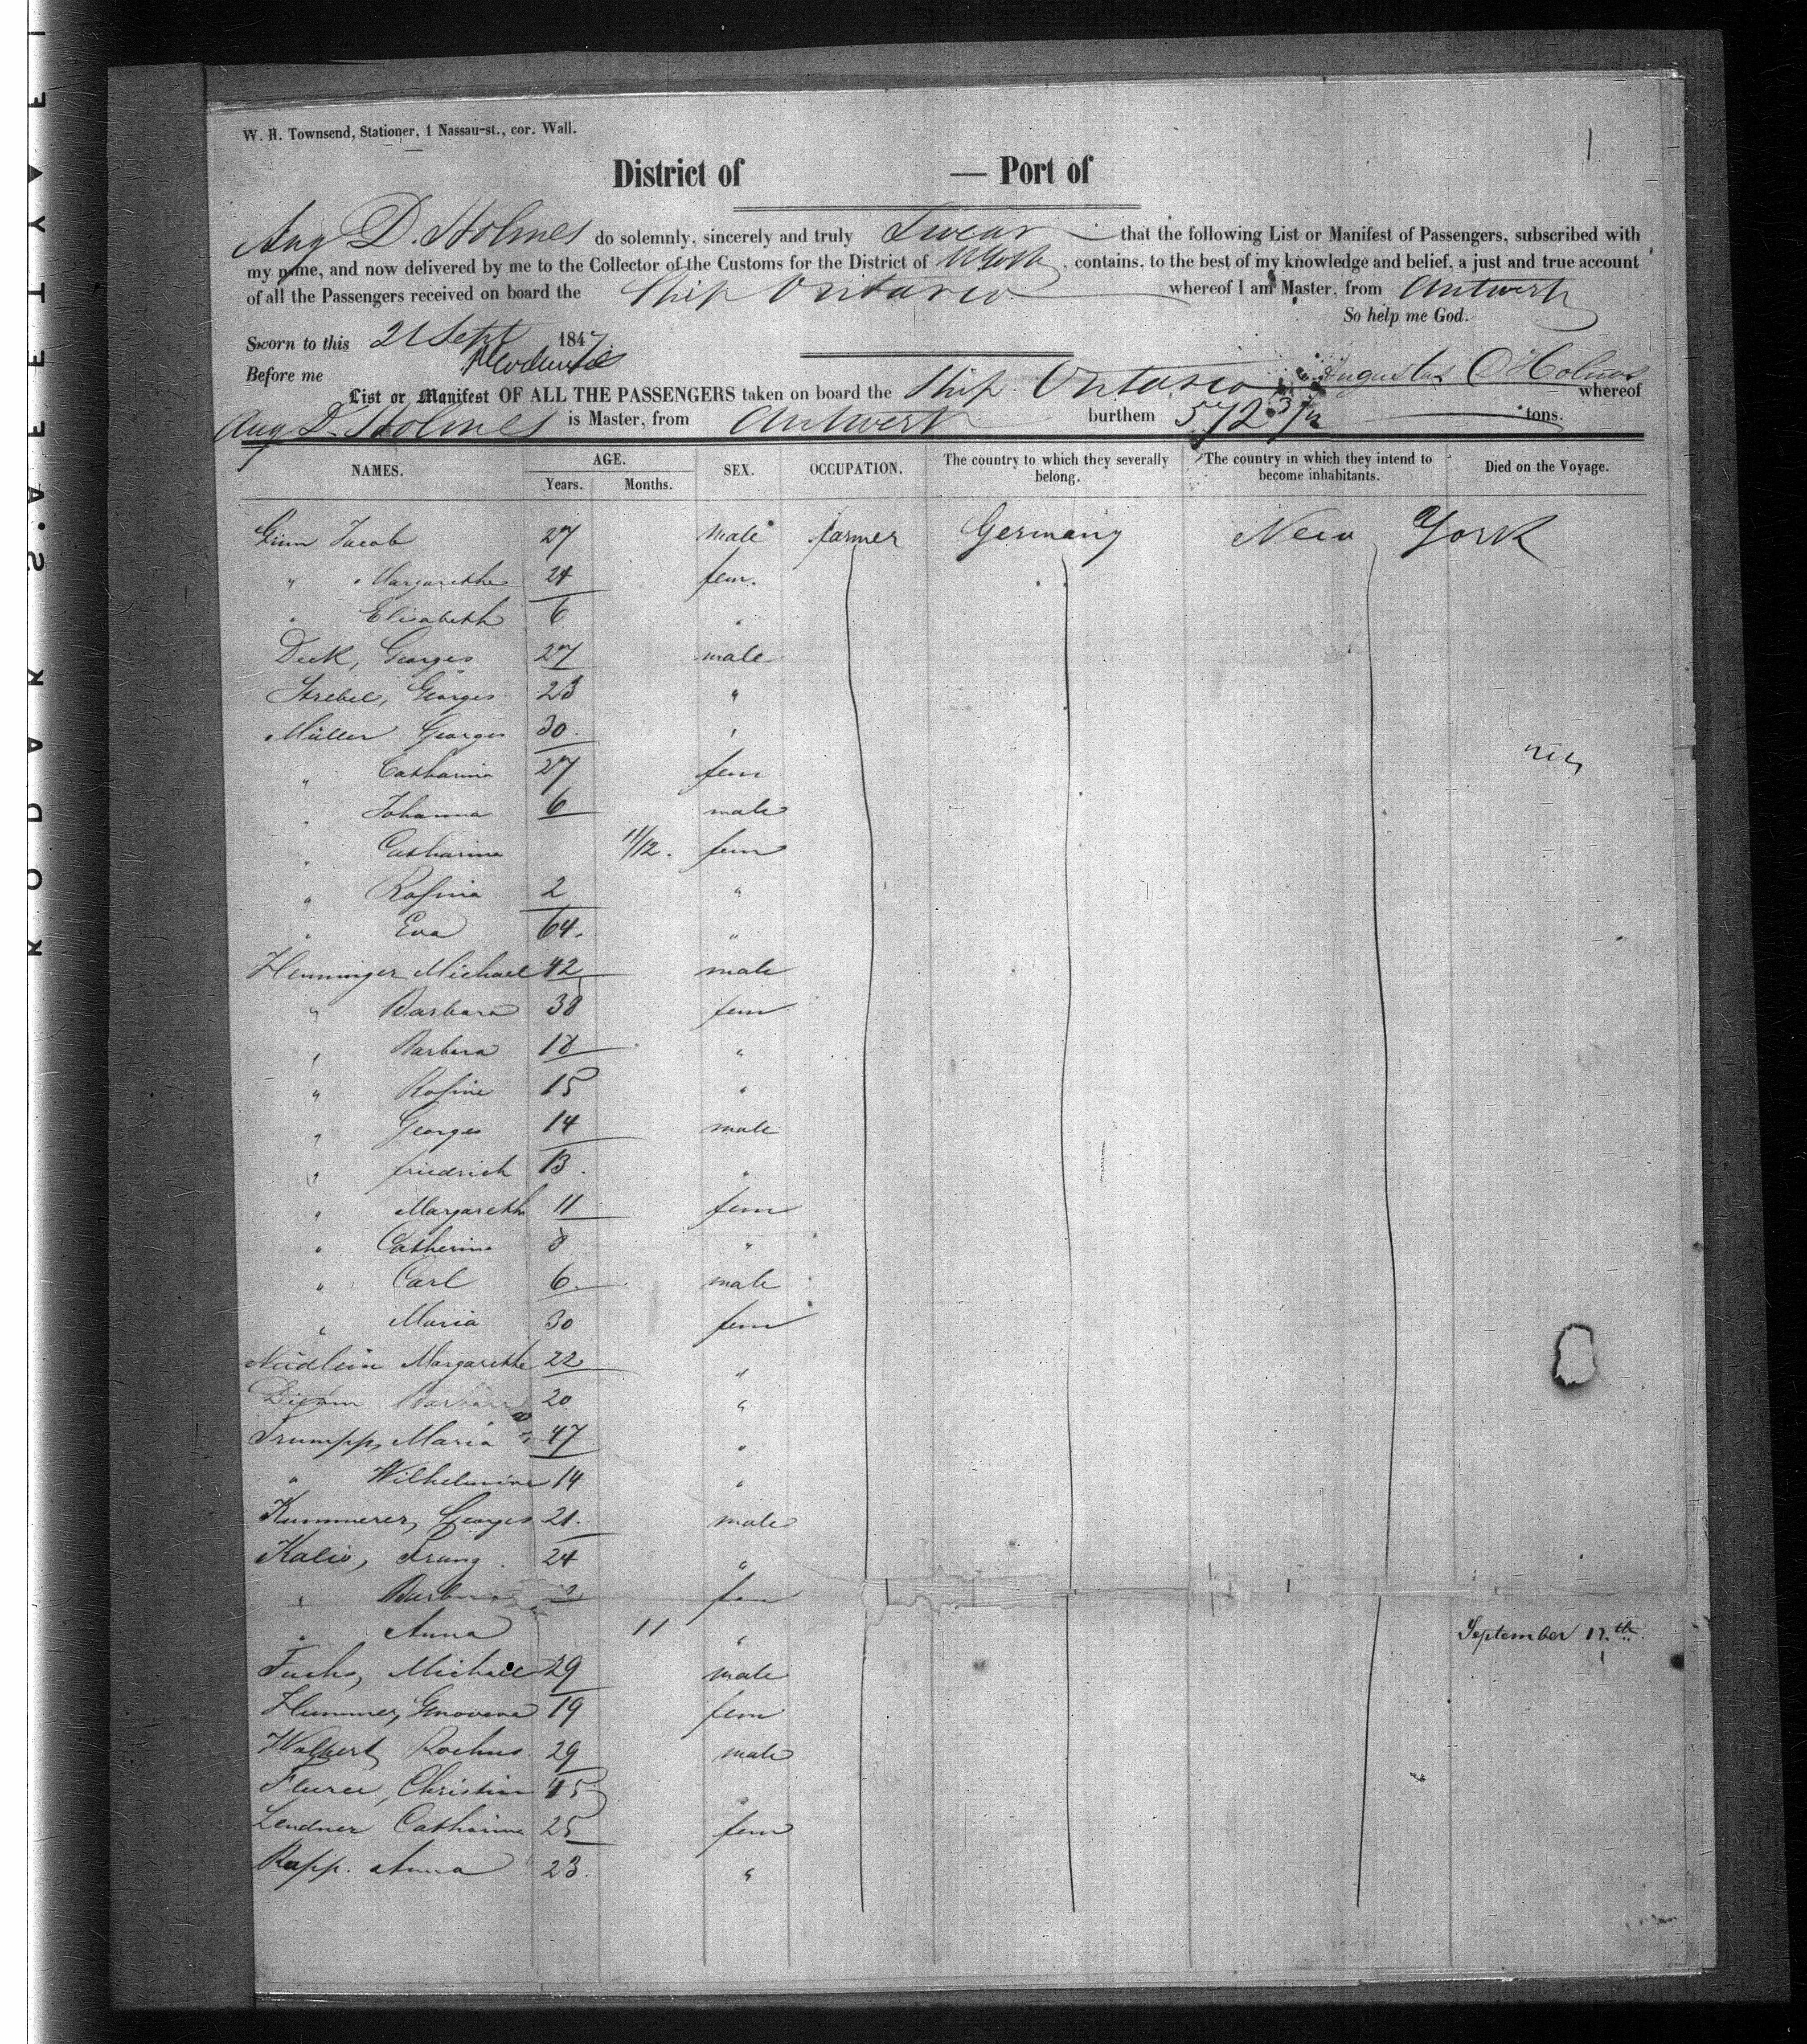 KODAK S.A.FETY
W. H. Townsend, Stationer, 1 Nassau-st., cor. Wall.
1
District of — Port of
Aug D. Holmes do solemnly, sincerely and truly Swear that the following List or Manifest of Passengers, subscribed with
my name, and now delivered by me to the Collector of the Customs for the District of NYork, contains, to the best of my knowledge and belief, a just and true account
of all the Passengers received on board the Ship Ontario whereof I am Master, from Antwerp
So help me God.
Sworn to this 21 Sept 1847
Before me
Augustus D Holmes
List or Manifest OF ALL THE PASSENGERS taken on board the Ship Ontario whereof
Aug D. Holmes is Master, from Antwerp burthem 572 tons.
NAMES. AGE. Years. Months. SEX. OCCUPATION. The country to which they severally belong. The country in which they intend to become inhabitants. Died on the Voyage.
Jacob 27 male farmer Germany New York
" Margarethe 24 fem.
" Elisabeth 6 "
Deek, Georges 27 male
Strebel, Georges 23 "
Müller Georges 30. "
" Catharina 27 fem
" Johanna 6 male
" Catharina 11/12. fem
" Rosina 2 "
" Eva 64. "
Henninger Michael 42 male
" Barbara 38 fem
" Barbara 18 "
" Rosine 15 "
" Georges 14 male
" friedrich 13. "
" Margareth 11 fem
" Catherina 8 "
" Carl 6. male
" Maria 30 fem
Nüdlein Margarethe 22 "
Barbara 20 "
Trumpp, Maria 47 "
" Wilhelmine 14 "
Kummerer, Georges 21. male
Kalis, Franz. 24 "
" Barbara fem
" Anna 11 " September 12th
Fuchs, Michael 29 male
Hummer, Genoveva 19 fem
Rochus 29 male
Christian 45 "
Lendner Catharina 25 fem
Rapp. Anna 23. "